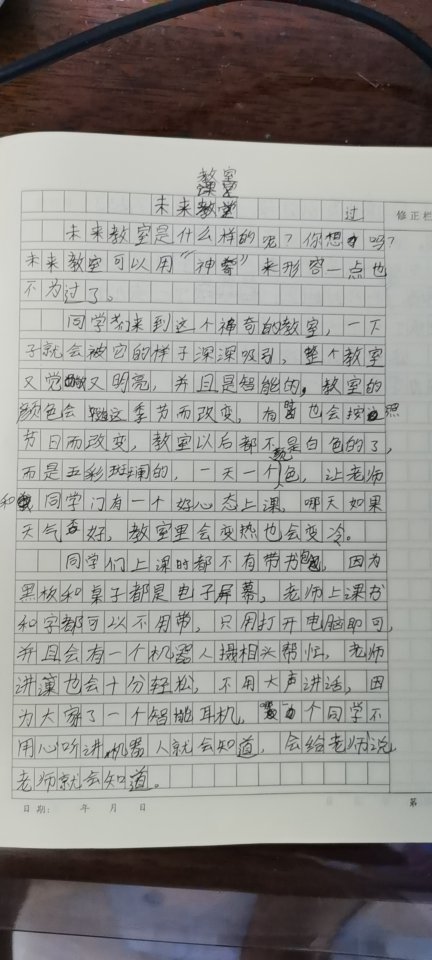 教室
未来教室
过
修正栏
未来教室是什么样的呢？你想吗？
未来教室可以用“神奇”来形容一点也
不为过了。
同学们来到这个神奇的教室，一下
子就会被它的样子深深吸引，整个教室
又宽又明亮，并且是智能的，教室的
颜色会随这季节而改变，有时也会按照
节日而改变，教室以后都不是白色的了，
而是五彩斑斓的，一天一个颜色，让老师
和同学门有一个好心态上课，哪天如果
天气不好，教室里会变热也会变冷。
同学们上课时都不有带书包，因为
黑板和桌子都是电子屏幕，老师上课书
和字都可以不用带，只用打开电脑即可，
并且会有一个机器人摄相头帮忙，老师
讲演也会十分轻松，不用大声讲话，因
为大家了一个智能耳机，个同学不
用心听讲，机器人就会知道，会给老师说，
老师就会知道。
日期： 年 月 日
第